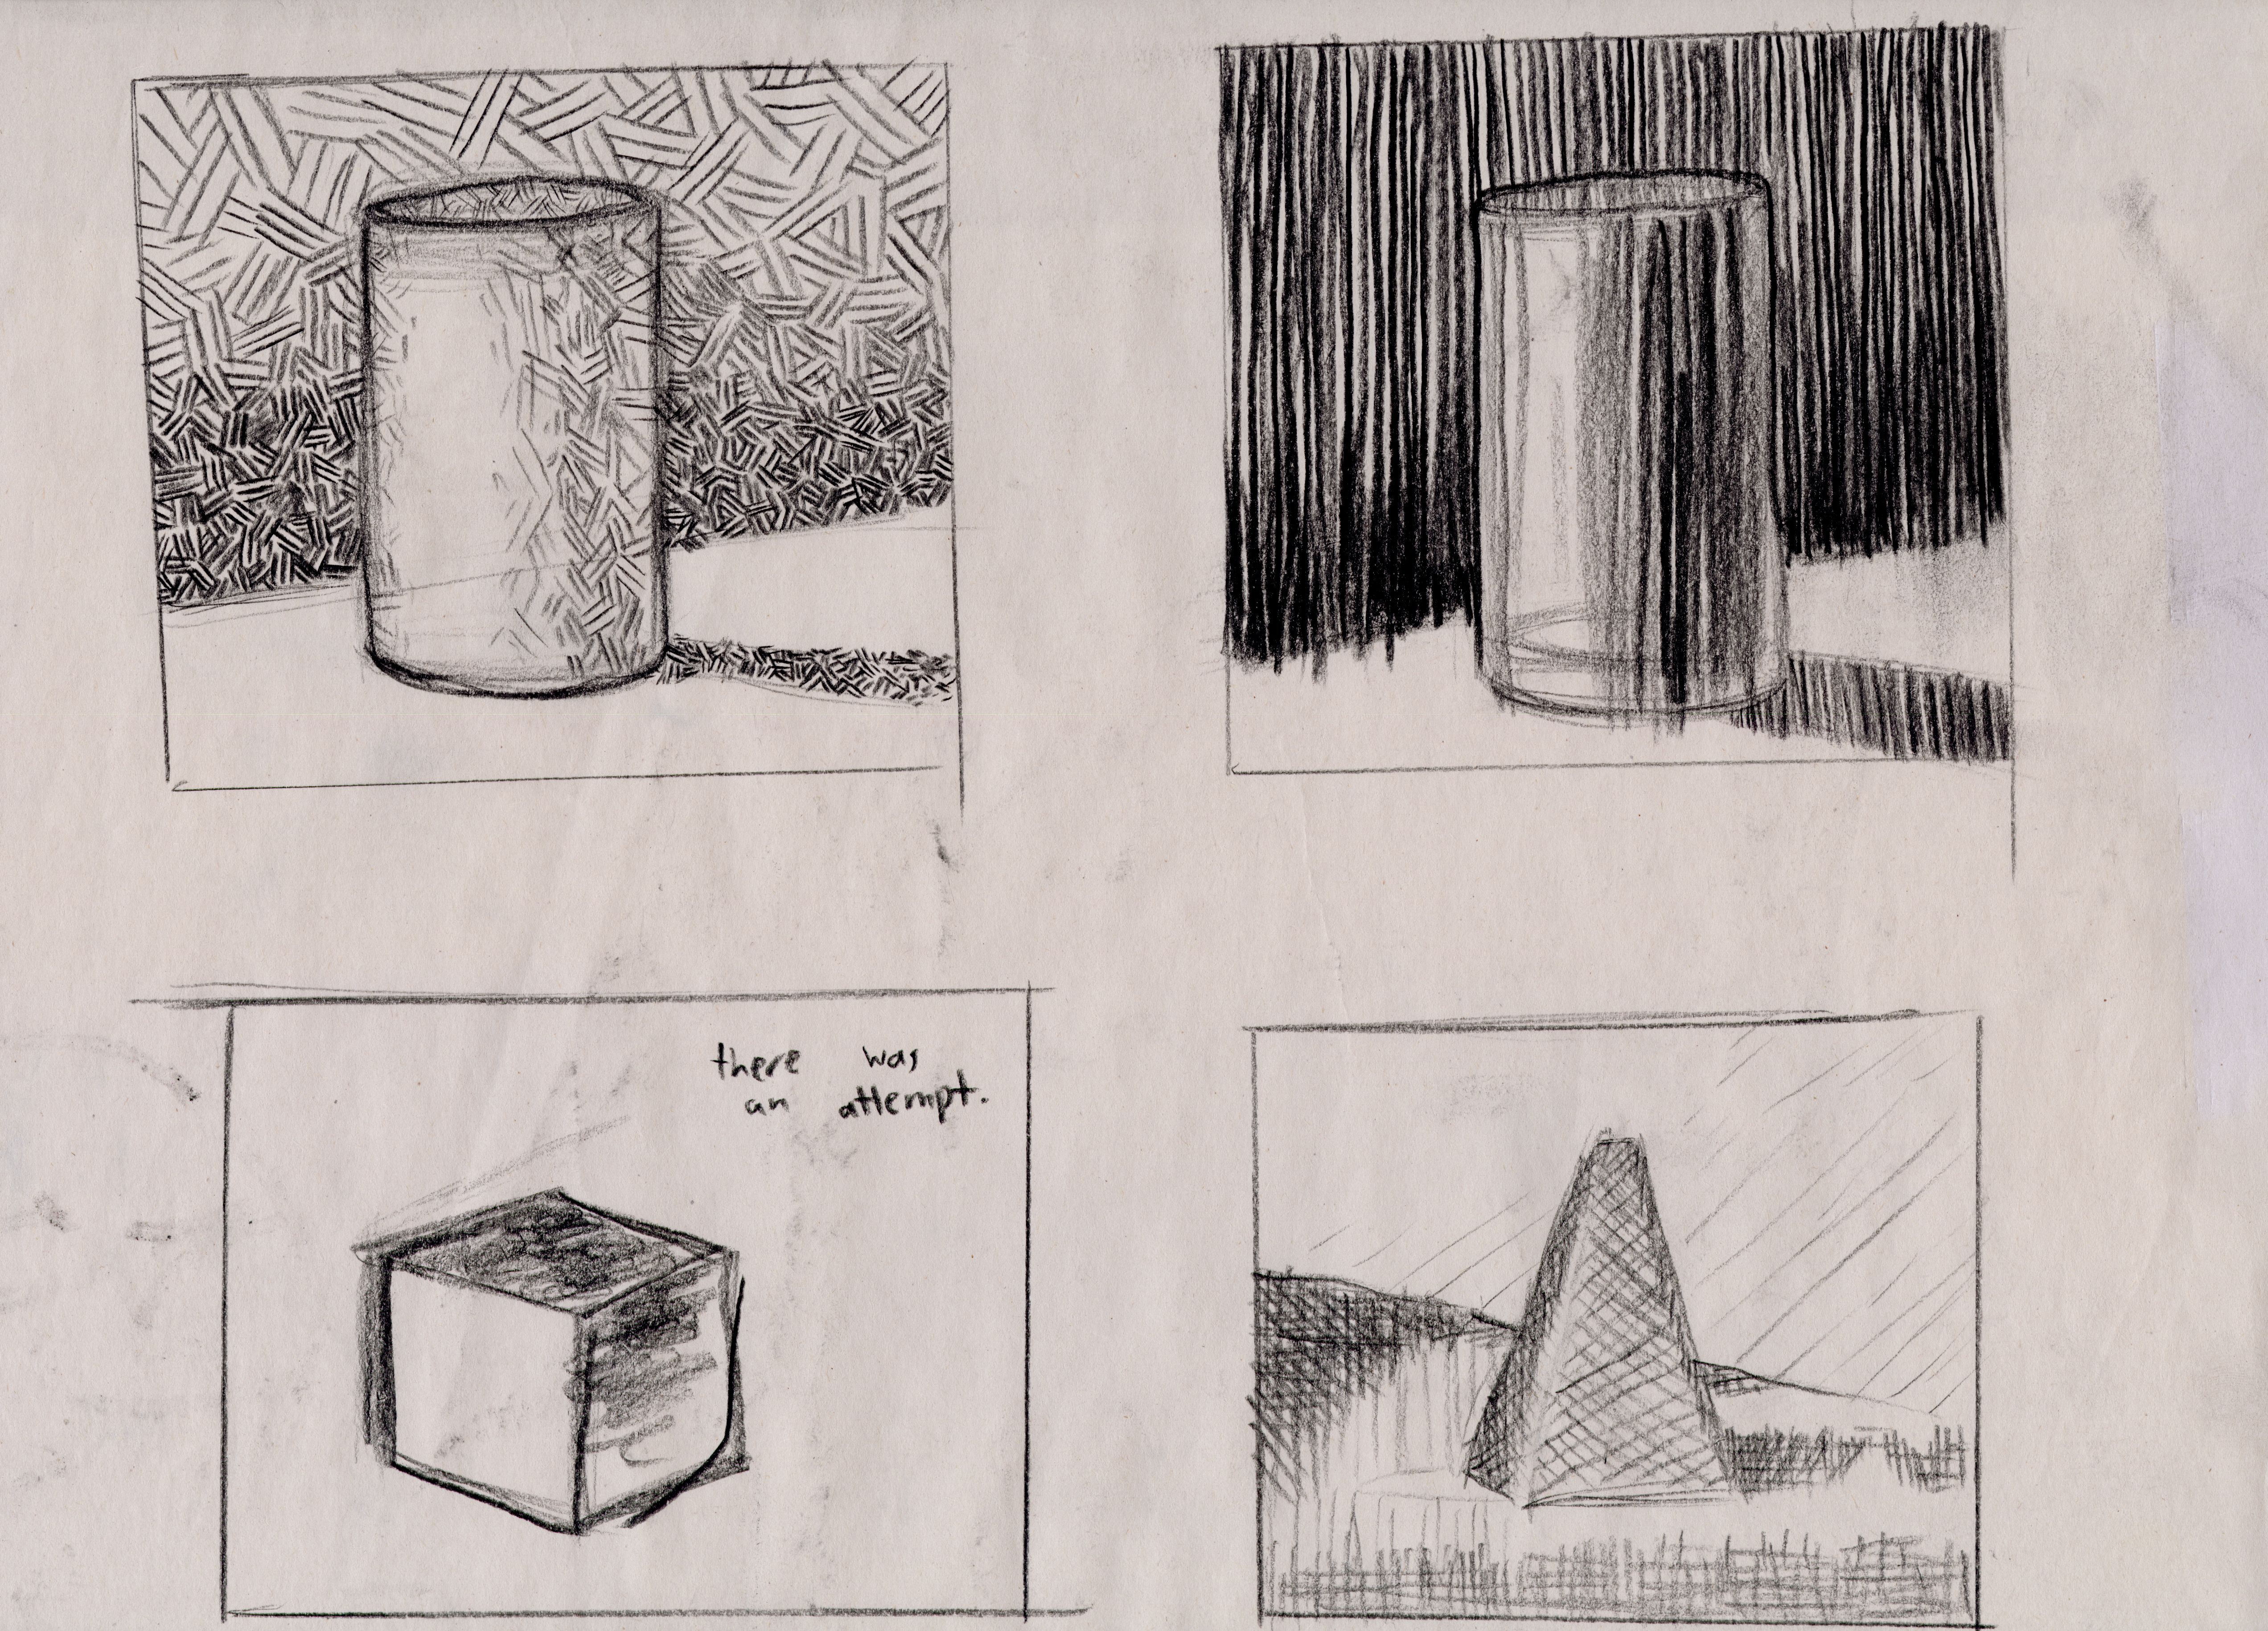 there was
an attempt.